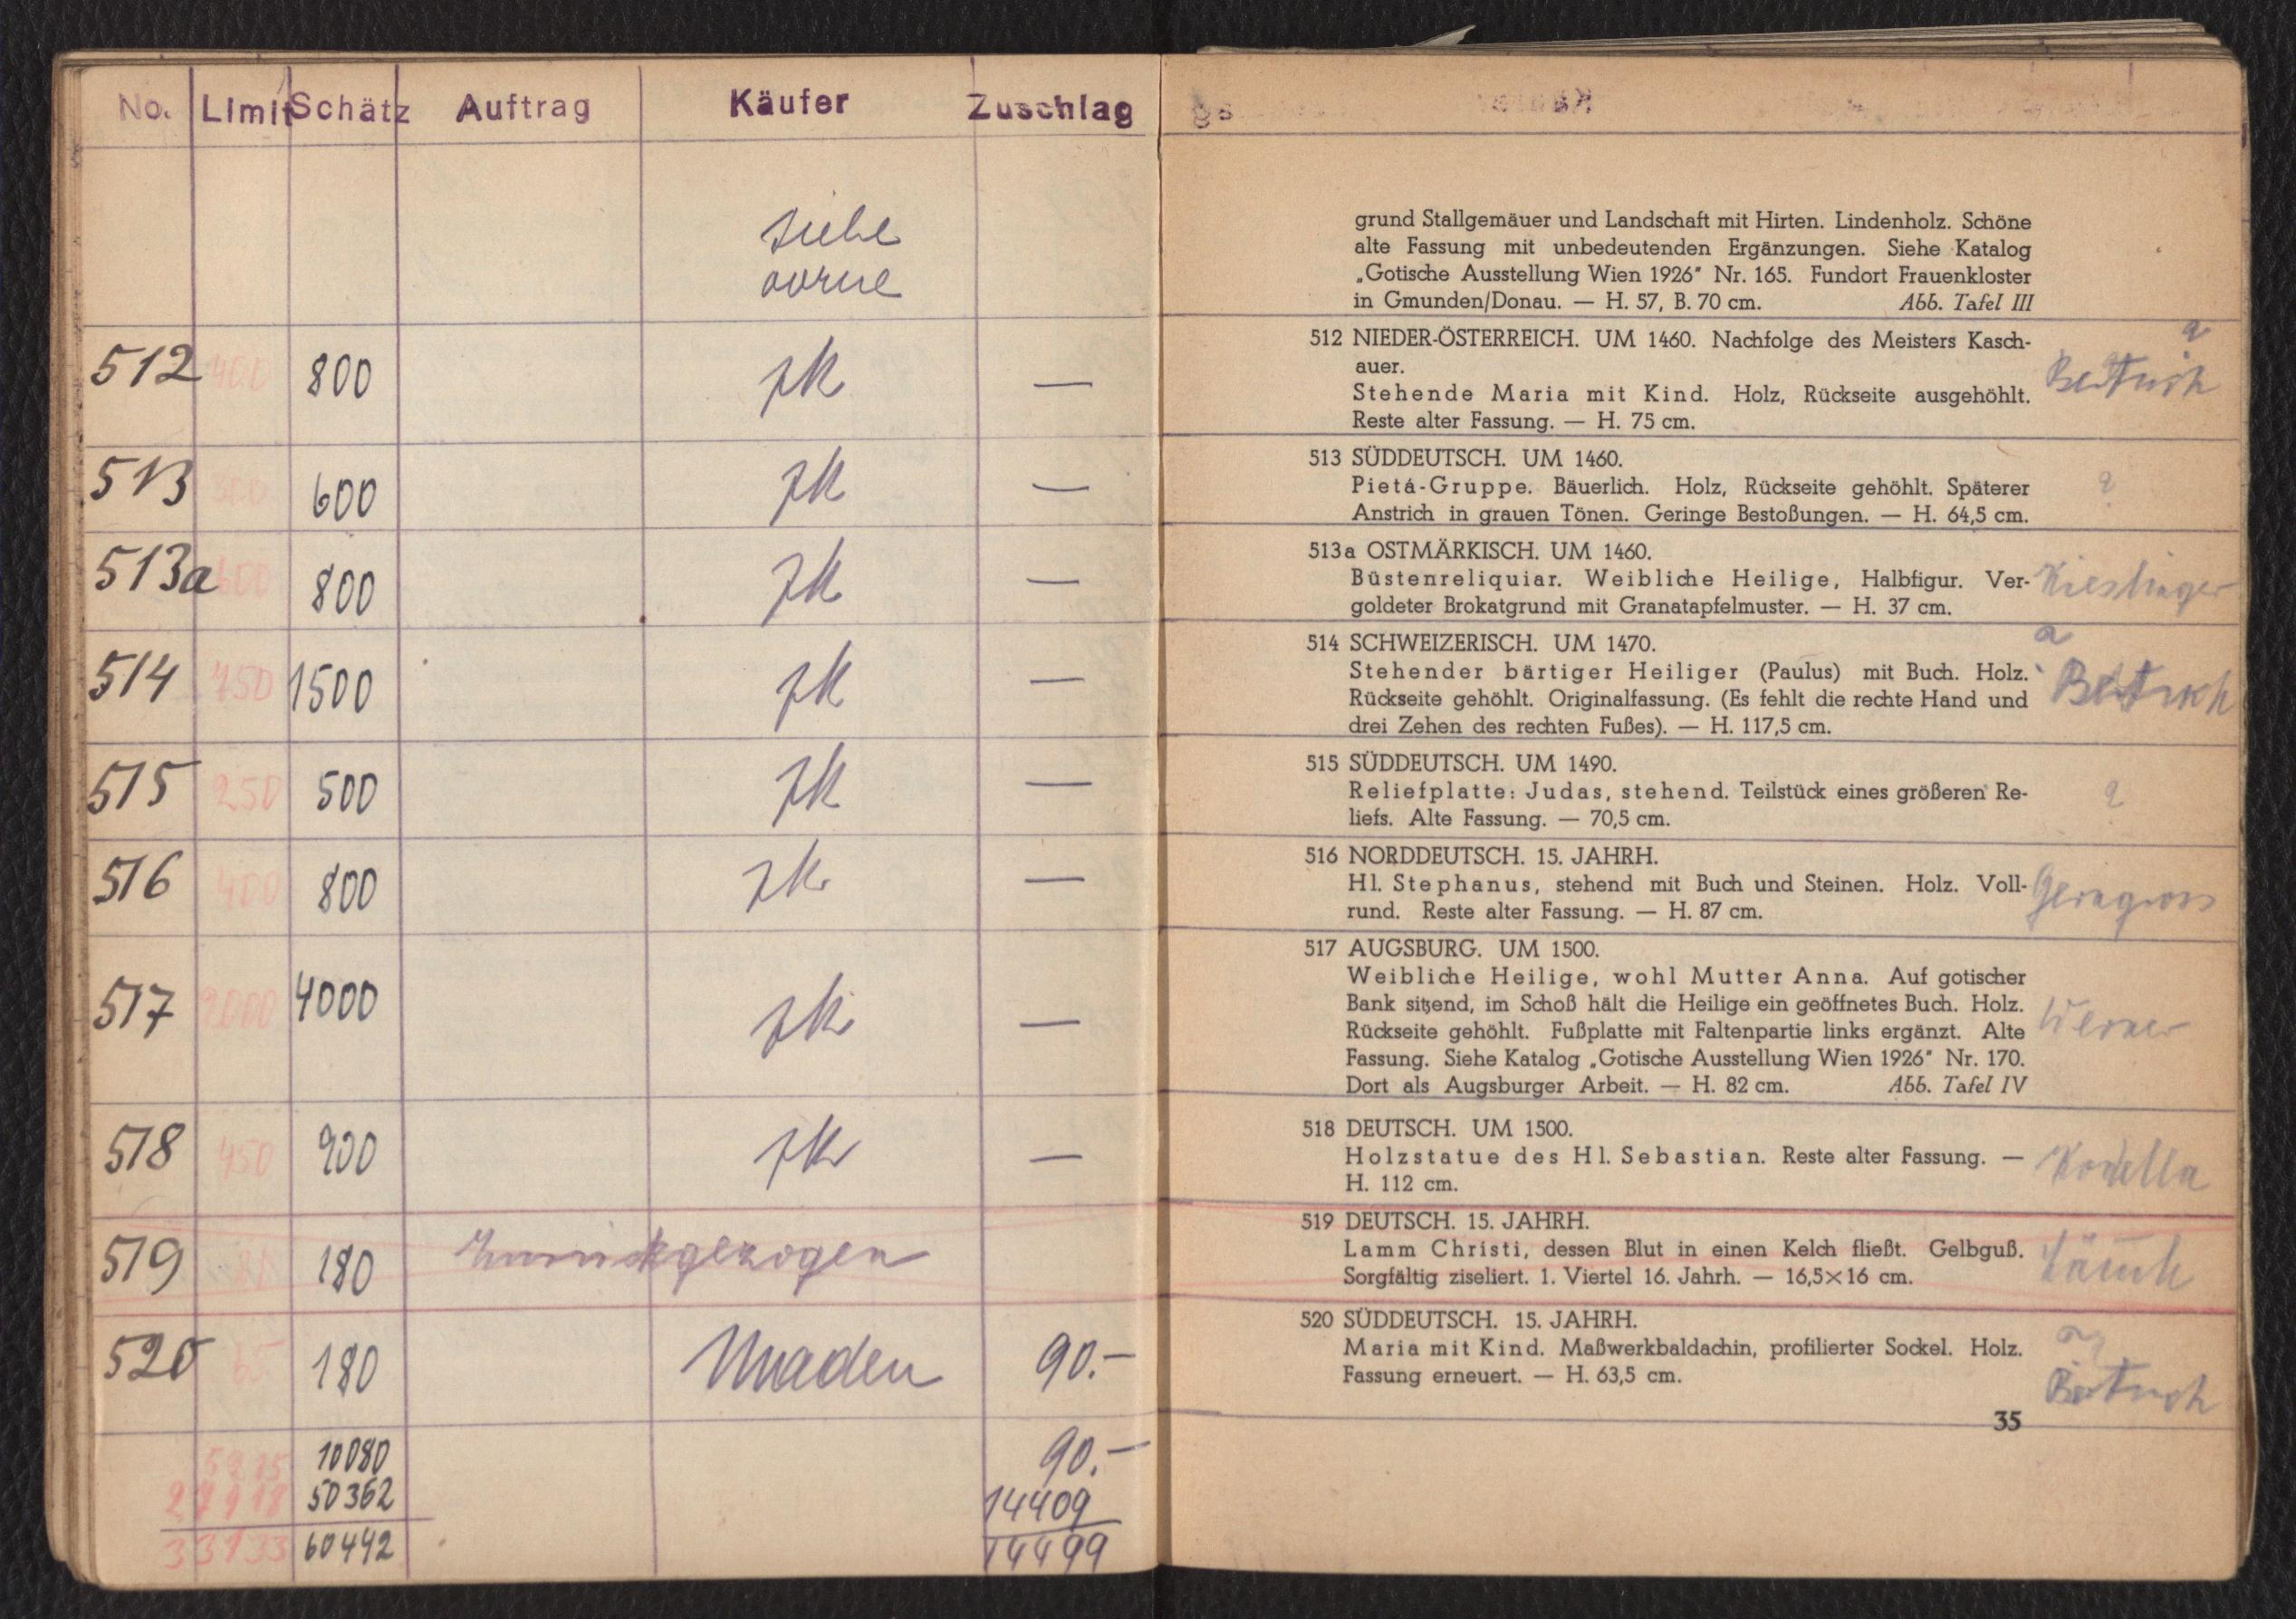 No. Limit Schätz Auftrag Käufer Zuschlag
siehe
vorne
512 400 800 zk —
513 300 600 zk —
513a 600 800 zk —
514 750 1500 zk —
515 250 500 zk —
516 400 800 zk —
517 2000 4000 zk —
518 450 900 zk —
519 180 Zurückgezogen
520 65 180 90.—
10080 90.—
50362 14409
33133 60442 14499
grund Stallgemäuer und Landschaft mit Hirten. Lindenholz. Schöne
alte Fassung mit unbedeutenden Ergänzungen. Siehe Katalog
„Gotische Ausstellung Wien 1926" Nr. 165. Fundort Frauenkloster
in Gmunden/Donau. — H. 57, B. 70 cm. Abb. Tafel III
512 NIEDER-ÖSTERREICH. UM 1460. Nachfolge des Meisters Kasch-
auer.
Stehende Maria mit Kind. Holz, Rückseite ausgehöhlt.
Reste alter Fassung. — H. 75 cm.
513 SÜDDEUTSCH. UM 1460.
Pietá-Gruppe. Bäuerlich. Holz, Rückseite gehöhlt. Späterer
Anstrich in grauen Tönen. Geringe Bestoßungen. — H. 64,5 cm.
513a OSTMÄRKISCH. UM 1460.
Büstenreliquiar. Weibliche Heilige, Halbfigur. Ver- Kieslinger
goldeter Brokatgrund mit Granatapfelmuster. — H. 37 cm.
514 SCHWEIZERISCH. UM 1470.
Stehender bärtiger Heiliger (Paulus) mit Buch. Holz.
Rückseite gehöhlt. Originalfassung. (Es fehlt die rechte Hand und
drei Zehen des rechten Fußes). — H. 117,5 cm.
515 SÜDDEUTSCH. UM 1490.
Reliefplatte: Judas, stehend. Teilstück eines größeren Re-
liefs. Alte Fassung. — 70,5 cm.
516 NORDDEUTSCH. 15. JAHRH.
Hl. Stephanus, stehend mit Buch und Steinen. Holz. Voll- Gerngross
rund. Reste alter Fassung. — H. 87 cm.
517 AUGSBURG. UM 1500.
Weibliche Heilige, wohl Mutter Anna. Auf gotischer
Bank sitzend, im Schoß hält die Heilige ein geöffnetes Buch. Holz.
Rückseite gehöhlt. Fußplatte mit Faltenpartie links ergänzt. Alte Werner
Fassung. Siehe Katalog „Gotische Ausstellung Wien 1926" Nr. 170.
Dort als Augsburger Arbeit. — H. 82 cm. Abb. Tafel IV
518 DEUTSCH. UM 1500.
Holzstatue des Hl. Sebastian. Reste alter Fassung. —
H. 112 cm.
519 DEUTSCH. 15. JAHRH.
Lamm Christi, dessen Blut in einen Kelch fließt. Gelbguß.
Sorgfältig ziseliert. 1. Viertel 16. Jahrh. — 16,5×16 cm.
520 SÜDDEUTSCH. 15. JAHRH.
Maria mit Kind. Maßwerkbaldachin, profilierter Sockel. Holz.
Fassung erneuert. — H. 63,5 cm.
35